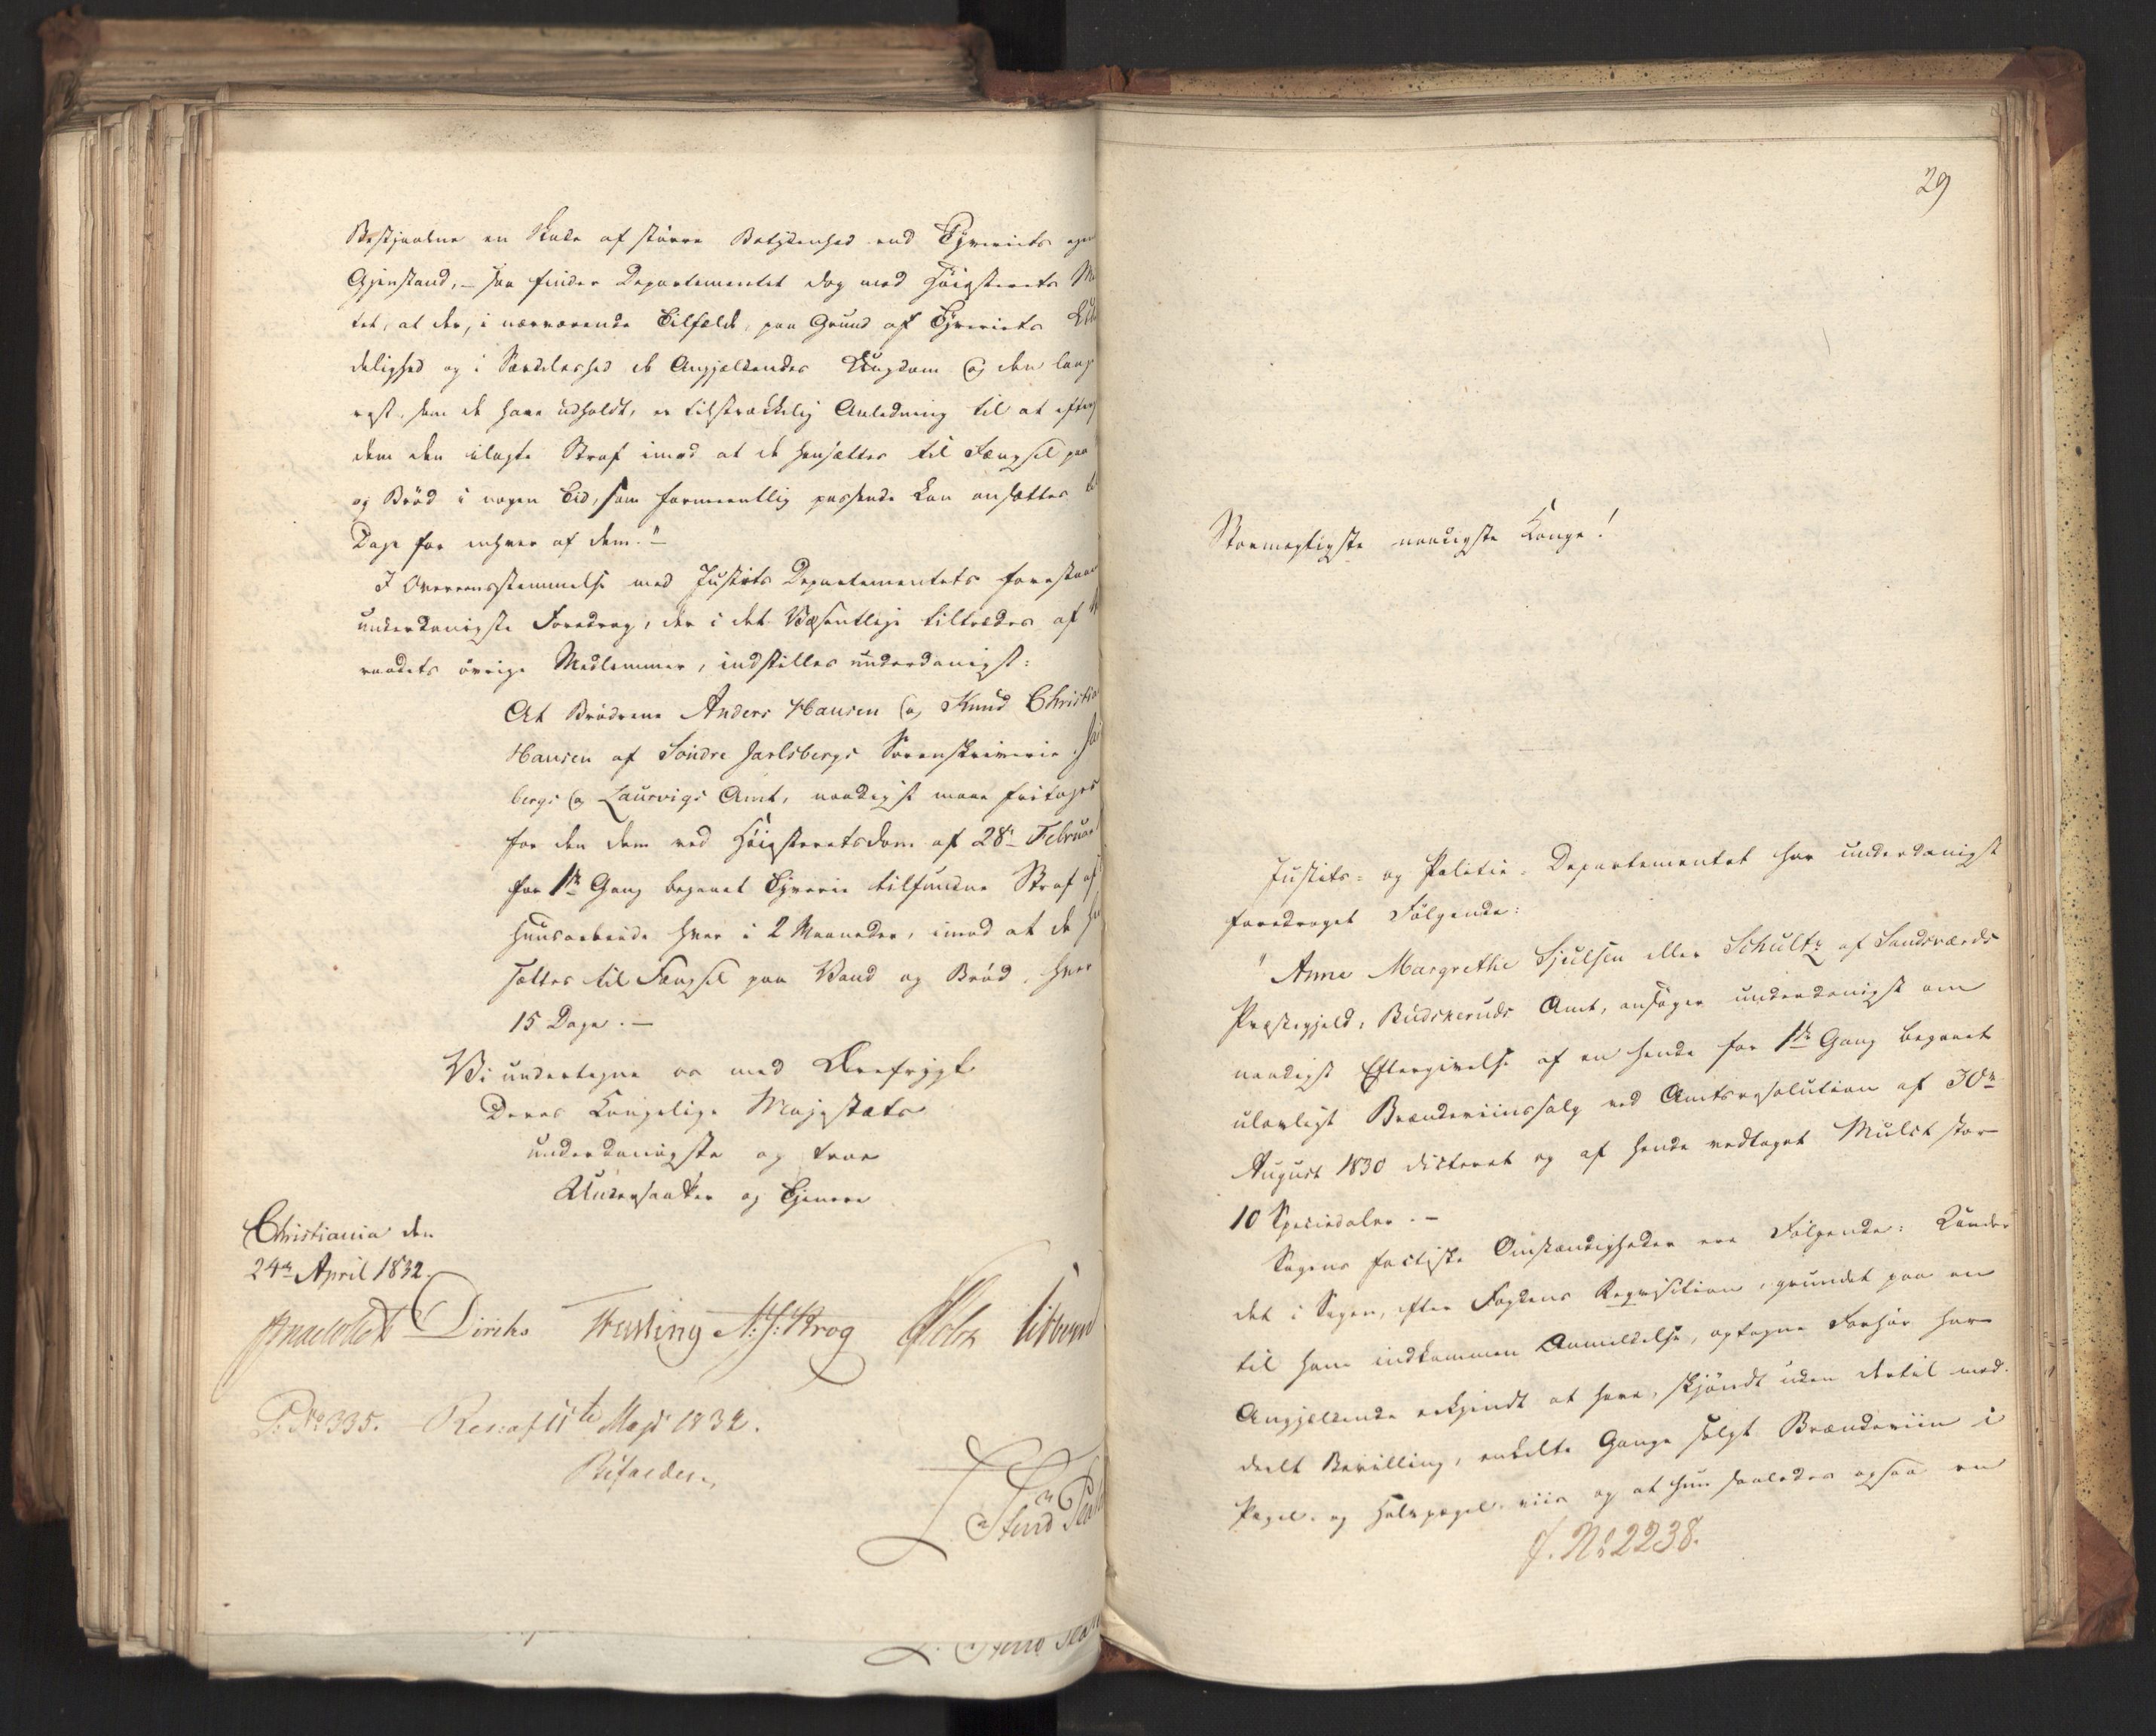 Bestjaalne en Skade af större Betydenhed end Tyveriets egen
Gjenstand, – saa finder Departementet dog med Höiesterets
tet, at der, i nærværende Tilfælde, paa Grund af Tyveriets
delighed og i Særdeleshed de Angjældendes Ungdom og den lange
rest, som de have udholdt, er tilstrækkelig Anledning til at
dem den ilagte Straf imod at de hensættes til Fængsel paa
og Bröd i nogen Tid, som formeentlig passende kan ansættes
Dage for enhver af dem." –
I Overeensstemmelse med Justits Departementets
underdanigste Foredrag, der i det Væsentlige tiltrædes af
raadets övrige Medlemmer, indstilles underdanigst:
At Brödrene Anders Hansen og Knud
Hansen af Söndre Jarlsbergs Sorenskriverie,
bergs og Laurvigs Amt, naadigst maae fritages
for den dem ved Höiesteretsdom af 28de
for 1ste Gang begaaet Tyverie tilfundne Straf af
Huusarbeide hver i 2 Maaneder, imod at de
sættes til Fængsel paa Vand og Bröd, hver
15 Dage. –
Vi undertegne os med Ærefrygt
Deres Kongelige Majestæts
underdanigste og troe
Undersaatter og Tjenere
Christiania den
24de April 1832.
Diriks N: J: Krog Holst
P. No 335. Res: af 11te Maji 1832.
Bifaldes.
29
Stormægtigste naadigste Konge!
Justits- og Politie-Departementet har underdanigst
foredraget Fölgende:
"Anne Margrethe Sjulsen eller Schultz af Sandsværds
Præstegjeld, Budskeruds Amt, ansöger underdanigst om
naadigst Eftergivelse af en hende for 1ste Gang begaaet
ulovligt Brændeviinssalg ved Amtsresolution af 30te
August 1830 dicteret og af hende vedtaget Mulct stor
10 Speciedaler. –
Sagens factiske Omstændigheder ere Fölgende: Under
det i Sagen, efter Fogdens Reqvisition, grundet paa en
til ham indkommen Anmeldelse, optagne Forhör har
Angjældende erkjendt at have, skjöndt uden dertil med-
deelt Bevilling, enkelte Gange solgt Brændeviin i
Pægel- og Halvpægel-viis og at hun saaledes ogsaa en
J. No 2238.